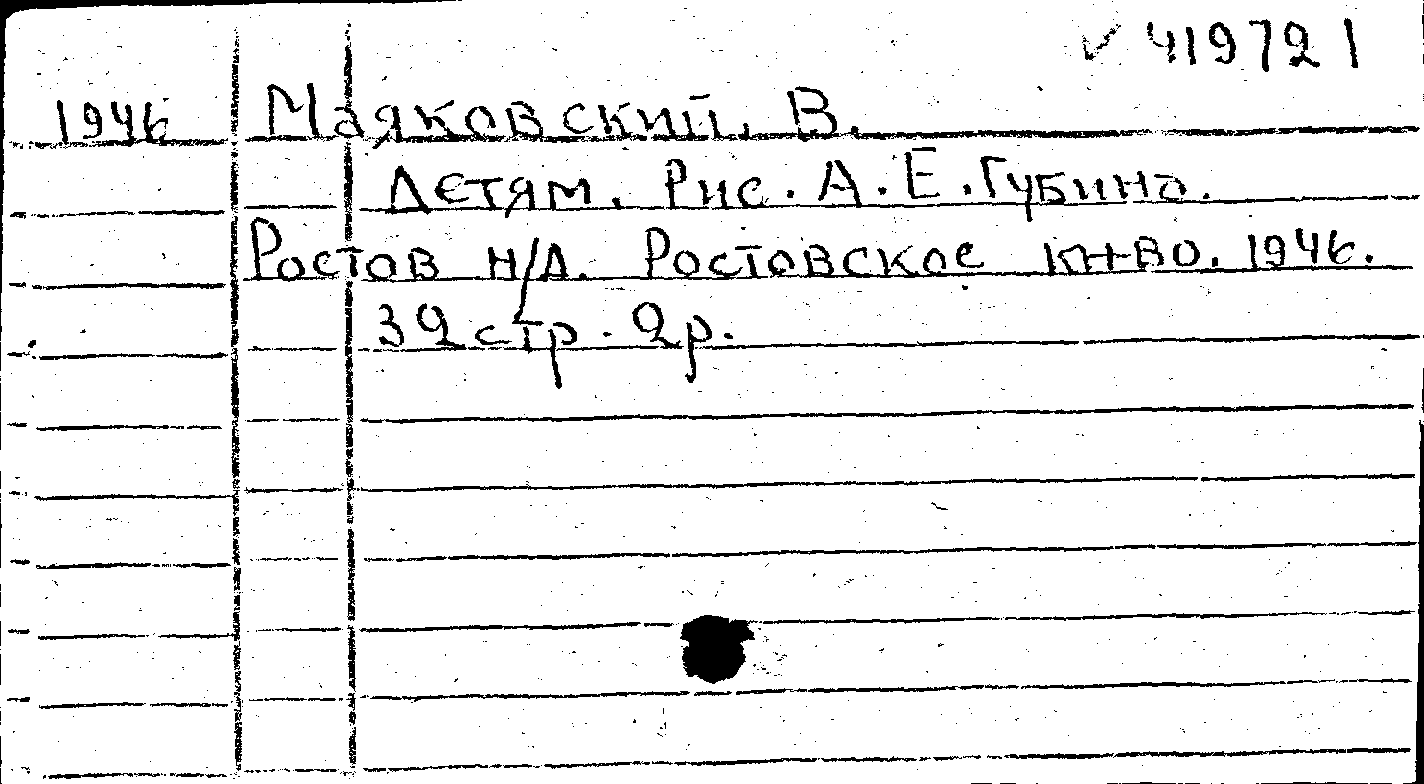 ✓ 419721
1946 Маяковский, В.
Детям. Рис. А. Е. Губина.
Ростов н/Д. Ростовское кн-во. 1946.
32 стр. 2р.